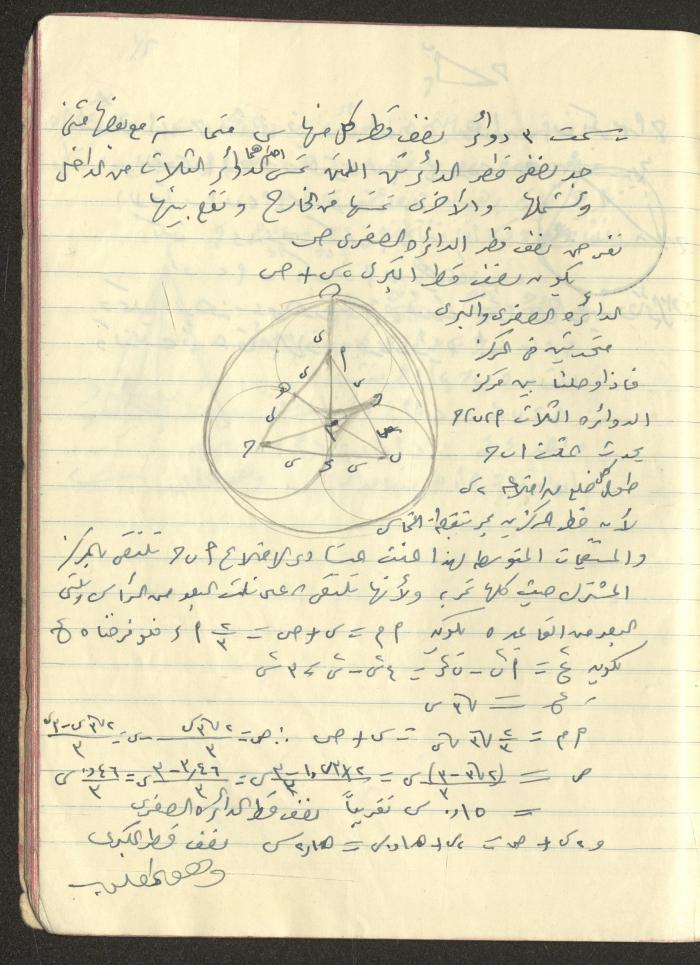 رسمت ٣ دوائر نصف قطر كل منها س متماسة مع بعضها مثنى
جد نصفي قطر الدائرتين اللتين تمس احداهما الدوائر الثلاث من الداخل
وتشملها والأخرى تمسها من الخارج وتقع بينها
نفرض نصف قطر الدائرة الصغرى ص
يكون نصف قطر الكبرى ٢س + ص
الدائرة الصغرى والكبرى
متحدتين في المركز
فاذا وصلنا بين مركز
الدوائر الثلاث ٢ ب ح
يحدث المثلث ا ب ح
طول كل ضلع من اضلاعه ٢س
لأن خط المركزين يمر بنقطة التماس
والمستقيمات المتوسطة لهذا المثلث المتساوي الاضلاع ٢ ب ح تلتقي بالمركز
المشترك حيث كلها تمر به ولأنها تلتقي على ثلث البعد من الرأس وثلثي
البعد من القاعدة يكون ٢م = س + ص = ٢/٣ ٢ء فلو فرضنا ه ع
يكون ع٢ = ٢ب٢ - ب ء٢ = ٤س٢ - س٢ = ٣س٢
ع = √٣ س
٢م = ٢/٣ √٣ س = س + ص ∴ ص = ٢√٣س/٣ - س = ٢√٣س - ٣س/٣
ص = (٢√٣ - ٣)/٣ س = ٢×١,٧٣ - ٣/٣ س = ٣,٤٦ - ٣/٣ س = ٠,٤٦/٣ س
= ٠,١٥ س تقريباً نصف قطر الدائرة الصغرى
و ٢س + ص = ٢س + ٠,١٥س = ٢,١٥س نصف قطر الكبرى
وهو المطلوب